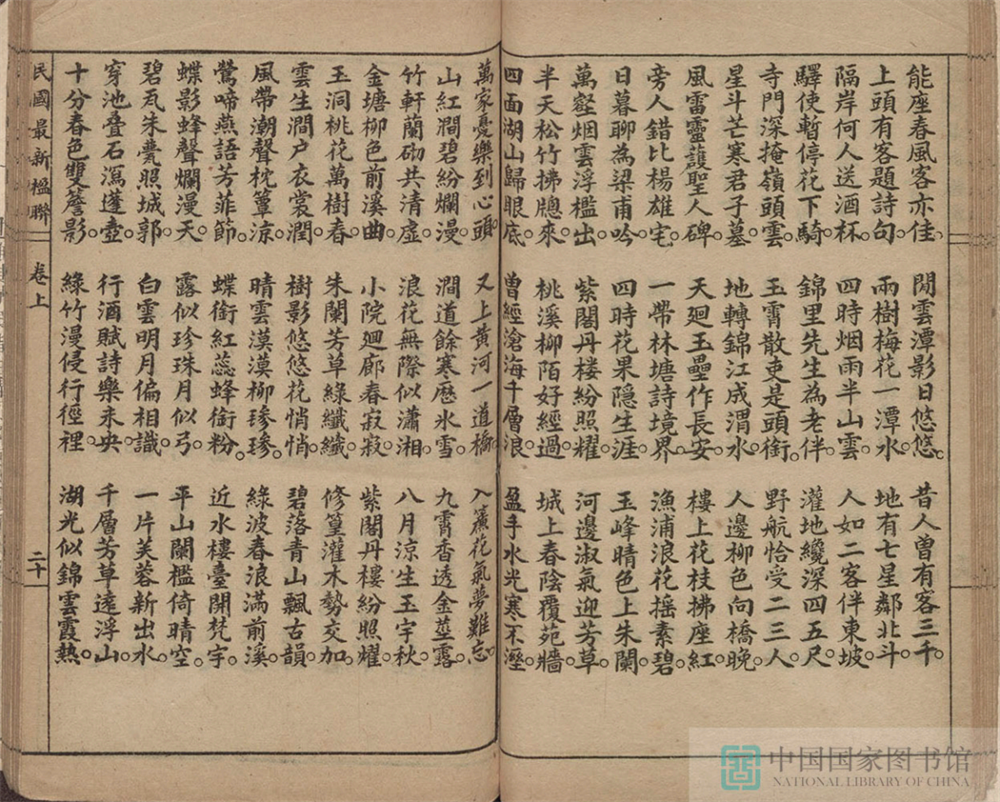 能座春風客亦佳。 閒雲潭影日悠悠。 昔人曾有客三千。
上頭有客題詩句。 兩樹梅花一潭水。 地有七星鄰北斗。
隔岸何人送酒杯。 四時烟雨半山雲。 人如二客伴東坡。
驛使暫停花下騎。 錦里先生為老伴。 灌地纔深四五尺。
寺門深掩嶺頭雲。 玉霄散吏是頭銜。 野航恰受二三人。
星斗芒寒君子墓。 地轉錦江成渭水。 人邊柳色向橋晚。
風雷靈護聖人碑。 天廻玉壘作長安。 樓上花枝拂座紅。
旁人錯比楊雄宅。 一帶林塘詩境界。 漁浦浪花搖素碧。
日暮聊為梁甫吟。 四時花果隱生涯。 玉峰晴色上朱闌。
萬壑烟雲浮檻出。 紫閣丹楼紛照耀。 河邊淑氣迎芳草。
半天松竹拂牕來。 桃溪柳陌好經過。 城上春陰覆苑牆。
四面湖山歸眼底。 曾經滄海千層浪。 盈手水光寒不溼。
萬家憂樂到心頭。 又上黃河一道梯。 入簾花氣夢難忘。
山紅澗碧紛爛漫。 澗道餘寒歷氷雪。 九霄香透金莖露。
竹軒蘭砌共清虛。 浪花無際似瀟湘。 八月凉生玉宇秋。
金塘柳色前溪曲。 小院廻廊春寂寂。 紫閣丹樓紛照耀。
玉洞桃花萬樹春。 朱闌芳草綠纖纖。 修篁灌木勢交加。
雲生澗户衣裳潤。 樹影悠悠花悄悄。 碧落青山飄古韻。
風帶潮聲枕簟凉。 晴雲漠漠柳毿毿。 綠波春浪滿前溪。
鶯啼燕語芳菲節。 蝶銜紅蕊蜂銜粉。 近水樓臺開梵宇。
蝶影蜂聲爛漫天。 露似珍珠月似弓。 平山闌檻倚晴空。
碧瓦朱甍照城郭。 白雲明月偏相識。 一片芙蓉新出水。
穿池叠石瀉蓬壺。 行酒賦詩樂未央。 千層芳草遠浮山。
十分春色雙簷影。 綠竹漫侵行徑裡。 湖光似錦雲霞熱。
民國最新楹聯 卷上 二十
中国国家图书馆
NATIONAL LIBRARY OF CHINA